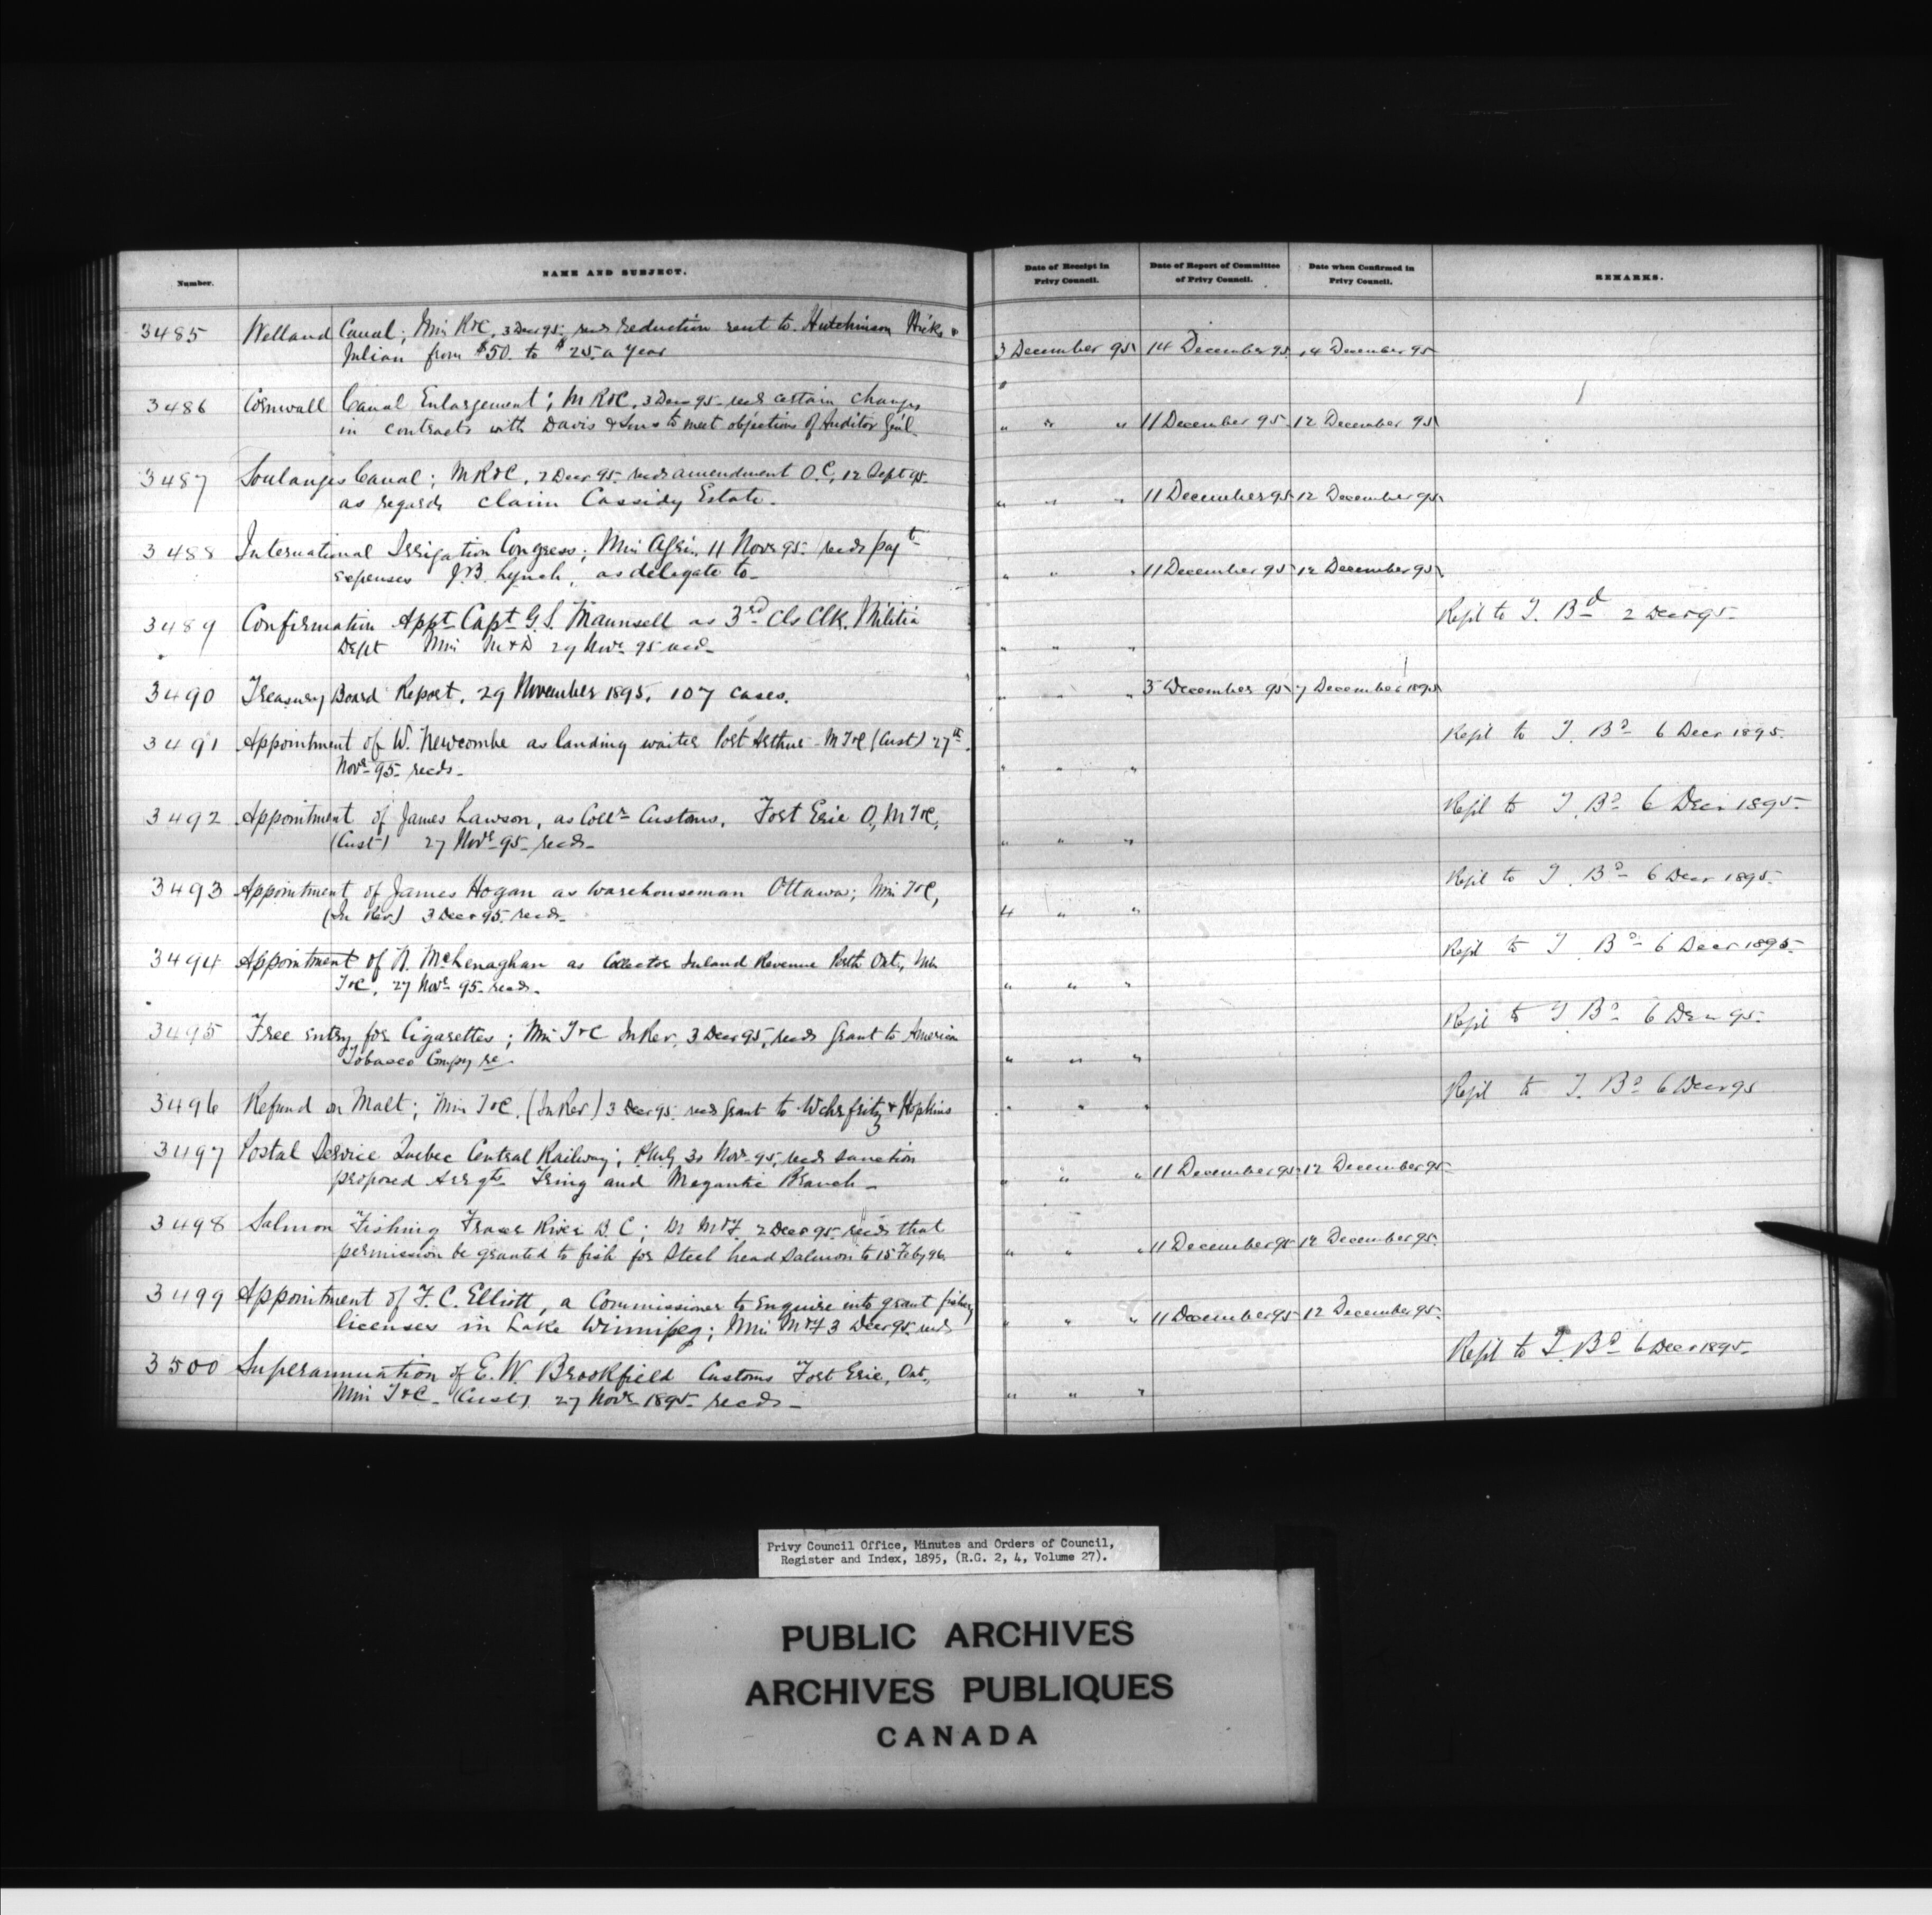 Number.
NAME AND SUBJECT.
Date of Receipt in Privy Council.
Date of Report of Committee of Privy Council.
Date when Confirmed in Privy Council.
REMARKS.
3485 Welland Canal; Min R&C, 3 Decr 95, recds reduction rent to Hutchinson Hicks &
Julian from $50. to $25, a year
3 December 95 14 December 95 14 December 95
3486 Cornwall Canal Enlargement; M R&C, 3 Decr 95 recds certain changes
in contracts with Davis & Sons to meet objections of Auditor Genl
" " " 11 December 95 12 December 95
3487 Soulanges Canal; M R&C, 2 Decr 95 recds amendment O.C, 12 Sept 95
as regards claim Cassidy Estate.
" " " 11 December 95 12 December 95
3488 International Irrigation Congress; Min Agri. 11 Novr 95 recds payt
expenses J.B. Lynch, as delegate to
" " " 11 December 95 12 December 95
3489 Confirmation Appt Capt G.S. Maunsell as 3rd Cls Clk. Militia
Dept Min M&D 29 Novr 95 recd
" " " Refd to T. Bd 2 Decr 95
3490 Treasury Board Report, 29 November 1895, 107 cases.
" " " 5 December 95 7 December 1895
3491 Appointment of W. Newcombe as landing waiter Port Arthur - M T&C (Cust) 27th
Novr 95 recds
" " " Refd to T. Bd 6 Decr 1895
3492 Appointment of James Lawson, as Collr Customs, Fort Erie O, M T&C,
(Cust) 27 Novr 95 recds
" " " Refd to T. Bd 6 Decr 1895
3493 Appointment of James Hogan as Warehouseman Ottawa; Min T&C,
(In Rev) 3 Decr 95 recds
4 " " Refd to T. Bd 6 Decr 1895
3494 Appointment of N. McLenaghan as Collector Inland Revenue Perth Ont, Min
T&C, 27 Novr 95 recds
" " " Refd to T. Bd 6 Decr 1895
3495 Free entry for Cigarettes; Min T&C In Rev. 3 Decr 95, recds grant to American
Tobacco Compy re
" " " Refd to T. Bd 6 Decr 95
3496 Refund on Malt; Min T&C, (In Rev) 3 Decr 95 recds grant to & Hopkins
" " " Refd to T. Bd 6 Decr 95
3497 Postal Service Quebec Central Railway; PMG 30 Novr 95, recds sanction
proposed Arrgts Tring and Megantic Branch
" " " 11 December 95 12 December 95
3498 Salmon Fishing Fraser River B.C; M M&F 2 Decr 95 recds that
permission be granted to fish for Steel head Salmon to 15 Feby 96
" " " 11 December 95 12 December 95
3499 Appointment of F.C. Elliott, a Commissioner to Enquire into grant fishery
licenses in Lake Winnipeg; Min M&F 3 Decr 95 recds
" " " 11 December 95 12 December 95
3500 Superannuation of E.W. Brookfield Customs Fort Erie, Ont,
Min T&C (Cust) 27 Novr 1895 recds
" " " Refd to T. Bd 6 Decr 1895
Privy Council Office, Minutes and Orders of Council,
Register and Index, 1895, (R.G. 2, 4, Volume 27).
PUBLIC ARCHIVES
ARCHIVES PUBLIQUES
CANADA